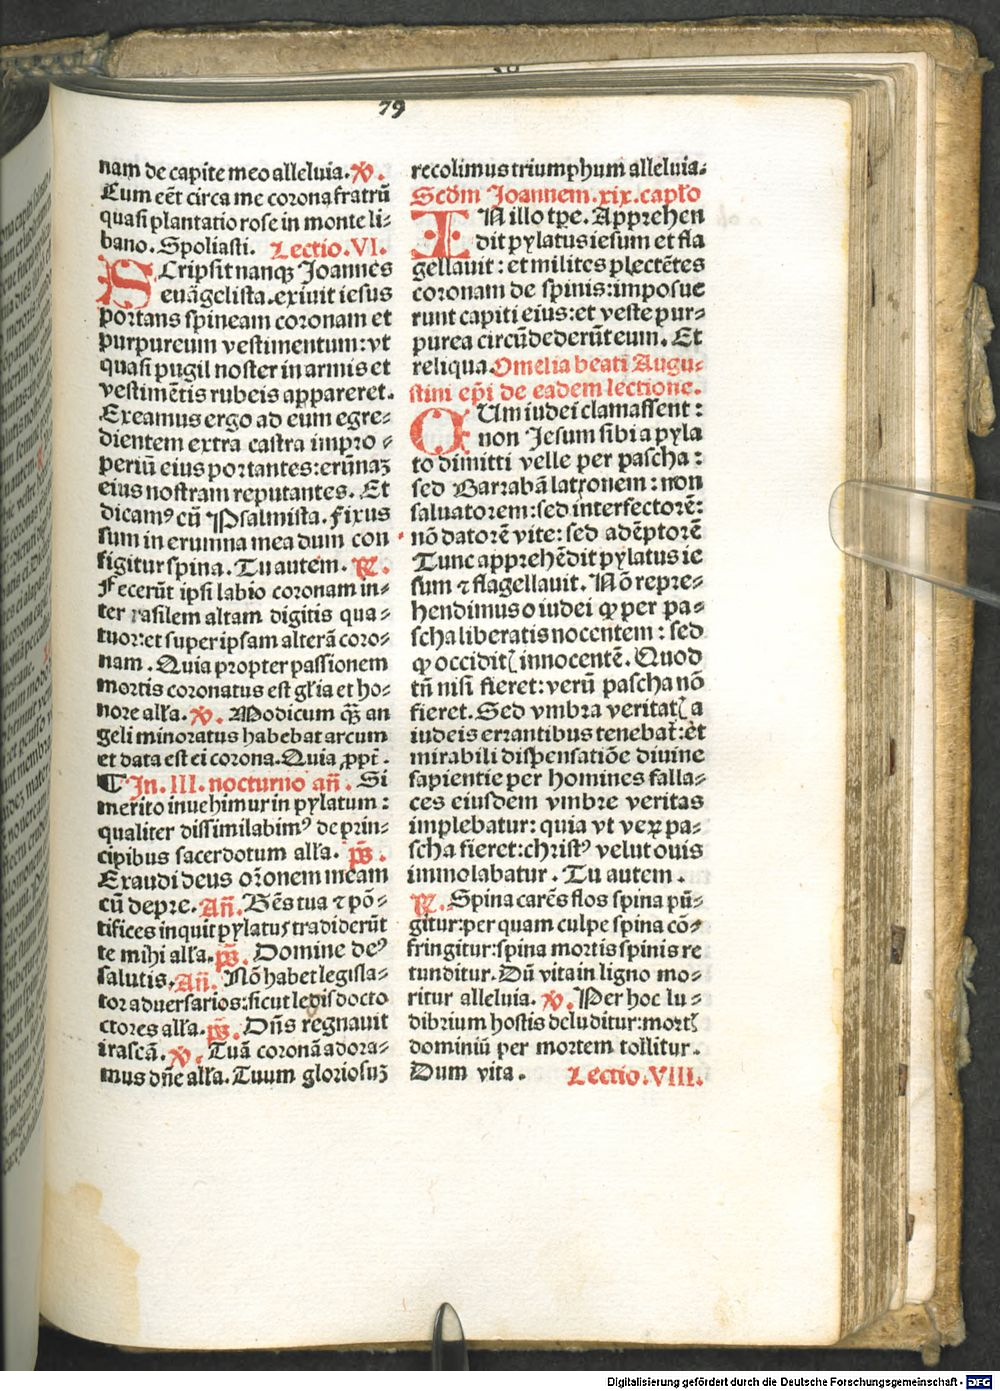 79
nam de capite meo alleluia. ℣.
Cum eēt circa me corona fratrū
quasi plantatio rose in monte li⸗
bano. Spoliasti. Lectio. VI.
Scripsit nanqꝫ Joannes
euāgelista. exiuit iesus
portans spineam coronam et
purpureum vestimentum: vt
quasi pugil noster in armis et
vestimētis rubeis appareret.
Exeamus ergo ad eum egre⸗
dientem extra castra impro⸗
periū eius portantes: erūnaꝫ
eius nostram reputantes. Et
dicamꝰ cū Psalmista. fixus
sum in erumna mea dum con
figitur spina. Tu autem. ℟.
Fecerūt ipsi labio coronam in⸗
ter rasilem altam digitis qua⸗
tuor: et super ipsam alterā coro⸗
nam. Quia propter passionem
mortis coronatus est gl̄ia et ho⸗
nore all̄a. ℣. Modicum qꝫ an
geli minoratus habebat arcum
et data est ei corona. Quia ꝓpt̄.
¶ In. III. nocturno an̄. Si
merito inuehimur in pylatum:
qualiter dissimilabimꝰ de prin⸗
cipibus sacerdotum all̄a. ps̄.
Exaudi deus or̄onem meam
cū depre. An̄. Gēs tua ⁊ pō⸗
tifices inquit pylatus tradiderūt
te mihi all̄a. ps̄. Domine deꝰ
salutis. An̄. Nō habet legisla⸗
tor aduersarios: sicut legis docto
ctores all̄a. ps̄. Dn̄s regnauit
irascā. ℣. Tuā coronā adora⸗
mus dn̄e all̄a. Tuum gloriosuꝫ
recolimus triumphum alleluia⸗
Scd̄m Joannem. xix. capl̄o
IN illo tp̄e. Apprehen
dit pylatus iesum et fla
gellauit: et milites plectētes
coronam de spinis: imposue
runt capiti eius: et veste pur⸗
purea circūdederūt eum. Et
reliqua. Omelia beati Augu⸗
stini ep̄i de eadem lectione.
CUm iudei clamassent:
non Jesum sibi a pyla
to dimitti velle per pascha:
sed Barrabā latronem: non
saluatorem: sed interfectorē:
nō datorē vite: sed adēptorē
Tunc apprehēdit pylatus ie
sum ⁊ flagellauit. Nō repre⸗
hendimus o iudei ꝙ per pa⸗
scha liberatis nocentem: sed
ꝙ occiditꝭ innocentē. Quod
tn̄ nisi fieret: verū pascha nō
fieret. Sed vmbra veritatꝭ a
iudeis errantibus tenebat̄: et
mirabili dispensatiōe diuine
sapientie per homines falla⸗
ces eiusdem vmbre veritas
implebatur: quia vt veꝝ pa⸗
scha fieret: christꝰ velut ouis
immolabatur. Tu autem.
℟. Spina carēs flos spina pū⸗
gitur: per quam culpe spina cō⸗
fringitur: spina mortis spinis re
tunditur. Dū vita in ligno mo⸗
ritur alleluia. ℣. Per hoc lu⸗
dibrium hostis deluditur: mortꝭ
dominiū per mortem tollitur.
Dum vita. Lectio. VIII.
Digitalisierung gefördert durch die Deutsche Forschungsgemeinschaft - DFG